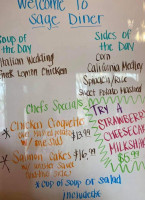 Welcome To
Sage Diner
Soup of
the Day
Italian Wedding
Greek Lemon Chicken
Sides of
the Day
Corn
California Medley
Spinach/Rice
Sweet Potato Mashed
Chef's Specials
* Chicken Croquette
$13.99
* Salmon Cakes $16.99
* cup of soup or salad
included
TRY A
STRAWBERRY
CHEESECAKE
MILKSHAKE
$6.99